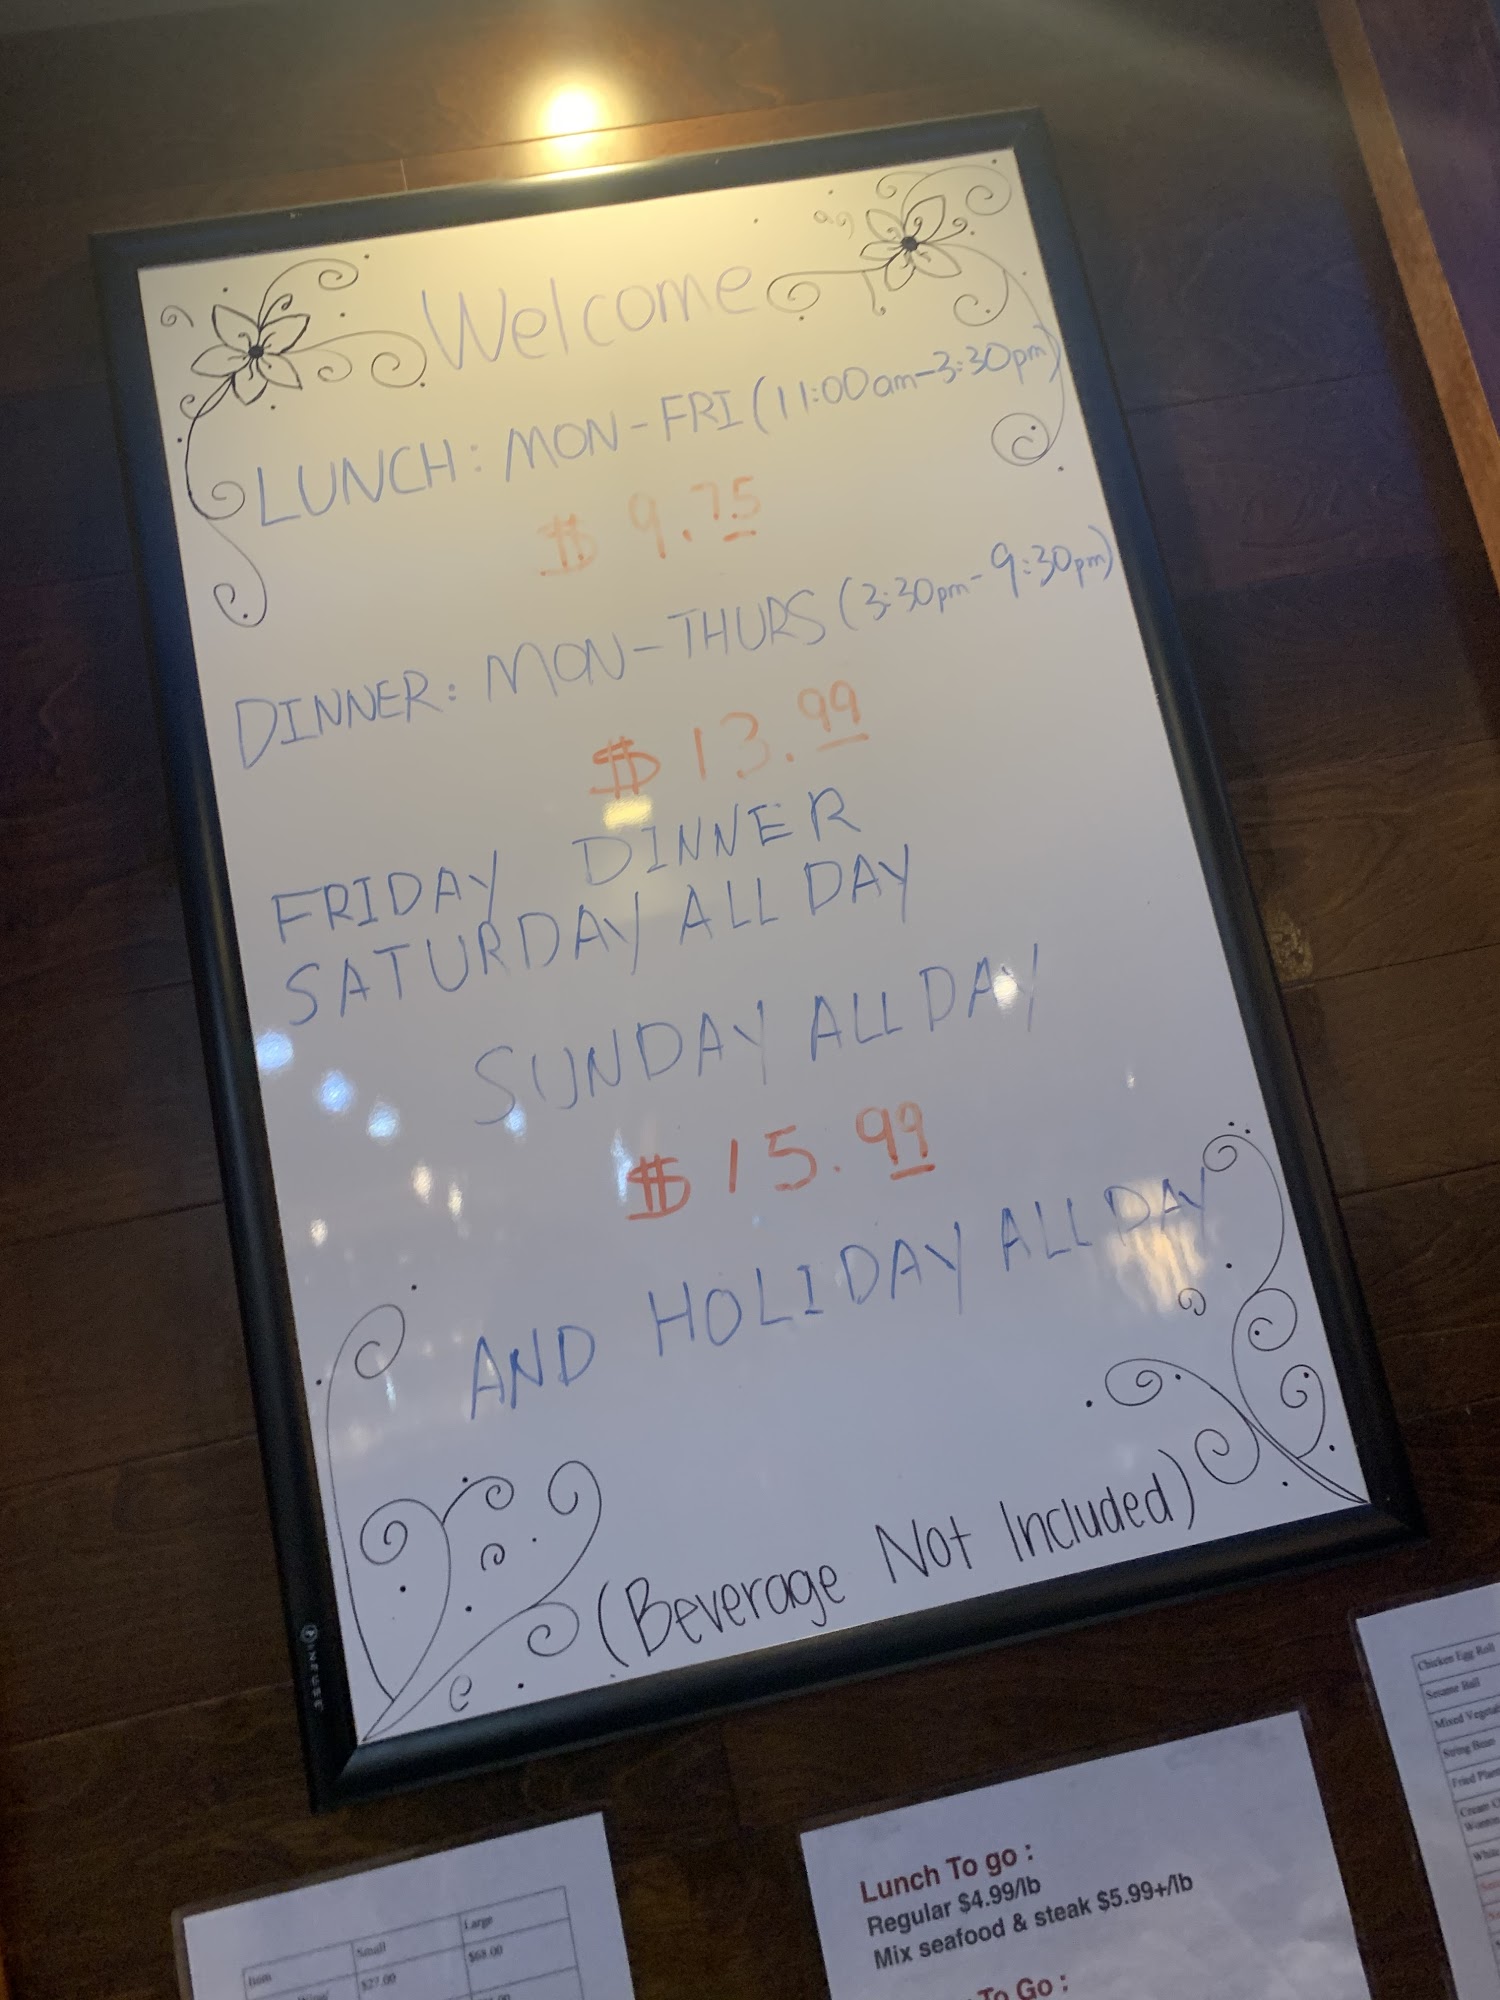 Welcome
LUNCH: MON-FRI (11:00am-3:30pm)
$9.75
DINNER: MON-THURS (3:30pm-9:30pm)
$13.99
FRIDAY DINNER
SATURDAY ALL DAY
SUNDAY ALL DAY
$15.99
AND HOLIDAY ALL DAY
(Beverage Not Included)
INFUSE
Item Small Large
$27.00 $68.00
Lunch To go :
Regular $4.99/lb
Mix seafood & steak $5.99+/lb
To Go :
Chicken Egg Roll
Sesame Ball
Mixed
String Bean
Fried
Cream